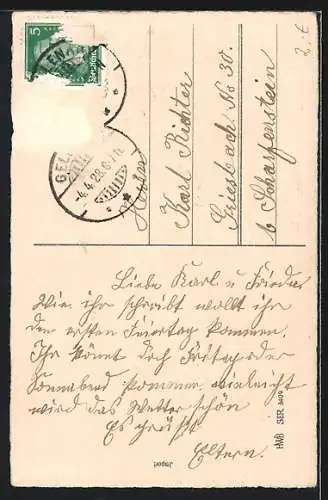 5
GEL
-4.4.28.6-7N.
2.-6
Herrn
Karl Richter
Griesbach No 30.
b Scharfenstein
Liebe Karl u Friedel
Wie ihr schreibt wollt ihr
den ersten Feiertag kommen.
Ihr könnt doch Freitag oder
Sonnabend kommen, vieleicht
wird das Wetter schön
Es grüßt
Eltern.
HWB SER
Import